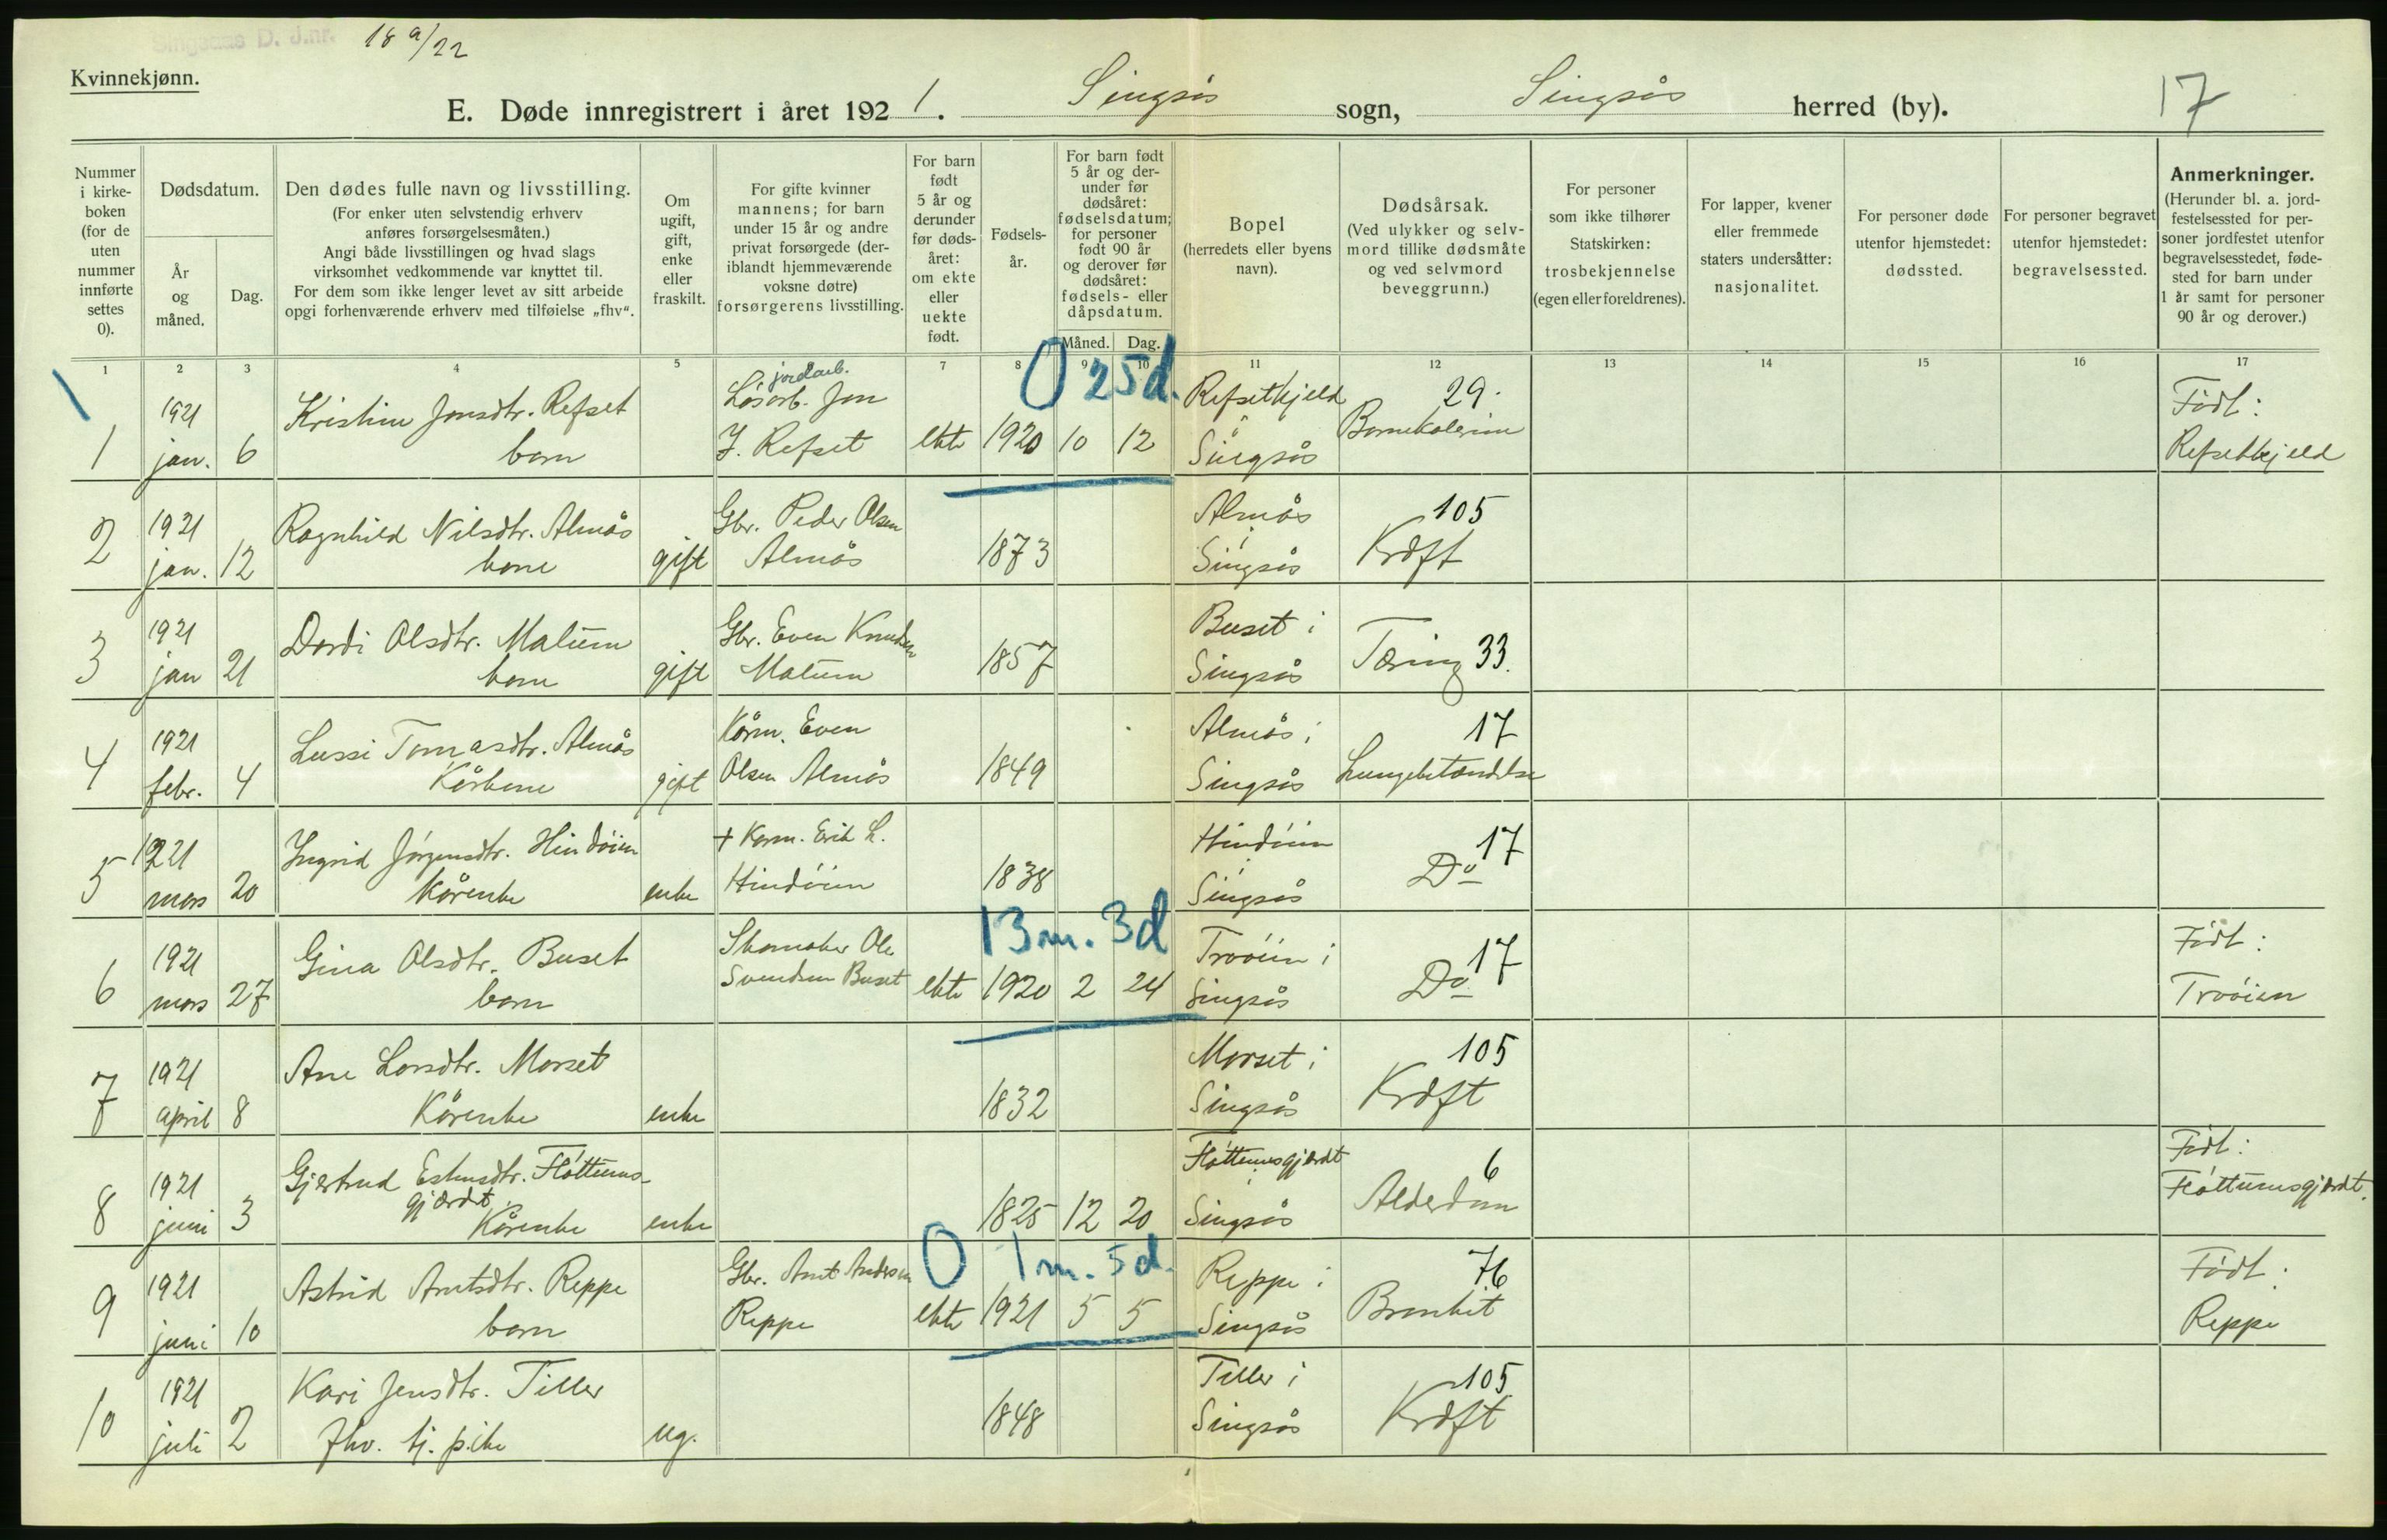 Singsaas D. J.nr. 18 a/22
Kvinnekjønn.
E. Døde innregistrert i året 1921. Singsås sogn, Singsås herred (by). 17
Nummer i kirkeboken (for de uten nummer innførte settes 0).
Dødsdatum.
År og måned.
Dag.
Den dødes fulle navn og livsstilling.
(For enker uten selvstendig erhverv anføres forsørgelsesmåten.)
Angi både livsstillingen og hvad slags virksomhet vedkommende var knyttet til.
For dem som ikke lenger levet av sitt arbeide opgi forhenværende erhverv med tilføielse „fhv“.
Om ugift, gift, enke eller fraskilt.
For gifte kvinner mannens; for barn under 15 år og andre privat forsørgede (deriblandt hjemmeværende voksne døtre) forsørgerens livsstilling.
For barn født 5 år og derunder før dødsåret: om ekte eller uekte født.
Fødselsår.
For barn født 5 år og derunder før dødsåret: fødselsdatum; for personer født 90 år og derover før dødsåret: fødsels- eller dåpsdatum.
Måned. Dag.
Bopel
(herredets eller byens navn).
Dødsårsak.
(Ved ulykker og selvmord tillike dødsmåte og ved selvmord beveggrunn.)
For personer som ikke tilhører Statskirken: trosbekjennelse (egen eller foreldrenes).
For lapper, kvener eller fremmede staters undersåtter: nasjonalitet.
For personer døde utenfor hjemstedet: dødssted.
For personer begravet utenfor hjemstedet: begravelsessted.
Anmerkninger.
(Herunder bl. a. jordfestelsessted for personer jordfestet utenfor begravelsesstedet, fødested for barn under 1 år samt for personer 90 år og derover.)
1 2 3 4 5 6 7 8 9 10 11 12 13 14 15 16 17
1 1921 jan. 6 Kristine Jonsdtr. Refset barn Løsarb. jordarb. Jon J. Refset ekte 1920 10 12 0 25d. Refsetkjeld Singsås 29. Barnekolerine Født: Refsetkjeld
2 1921 jan. 12 Ragnhild Nilsdtr. Almås kone gift Gbr. Peder Olsen Almås 1873 Almås i Singsås 105 Kræft
3 1921 jan 21 Dordi Olsdtr. Matum kone gift Gbr. Even Knudsen Matum 1857 Buset i Singsås Tæring 33.
4 1921 febr. 4 Lussi Tomasdtr. Almås Kårkone gift Kårm. Even Olsen Almås 1849 Almås i Singsås 17 Lungebetændelse
5 1921 mars 20 Ingrid Jørgensdtr. Hindøien Kårenke enke + Karm. Erik L. Hindøien 1838 Hindøien i Singsås 17 Do
6 1921 mars 27 Gina Olsdtr. Buset barn Skomaker Ole Svendsen Buset ekte 1920 2 24 13 m. 3 d Trøøien i Singsås 17 Do Født: Trøøien
7 1921 april 8 Ane Larsdtr. Morset Kårenke enke 1832 Morset i Singsås 105 Kræft
8 1921 juni 3 Gjertrud Estensdtr. Fløttumsgjærdt Kårenke enke 1825 12 20 Fløttumsgjærdt i Singsås 6 Alderdom Født: Fløttumsgjærdt.
9 1921 juni 10 Astrid Arntsdtr. Reppe barn Gbr. Arnt Andersen Reppe ekte 1921 5 5 0 1 m. 5 d. Reppe i Singsås 76 Bronkit Født: Reppe
10 1921 juli 2 Kari Jensdtr. Tiller fhv. tj. pike ug. 1848 Tiller i Singsås 105 Kræft